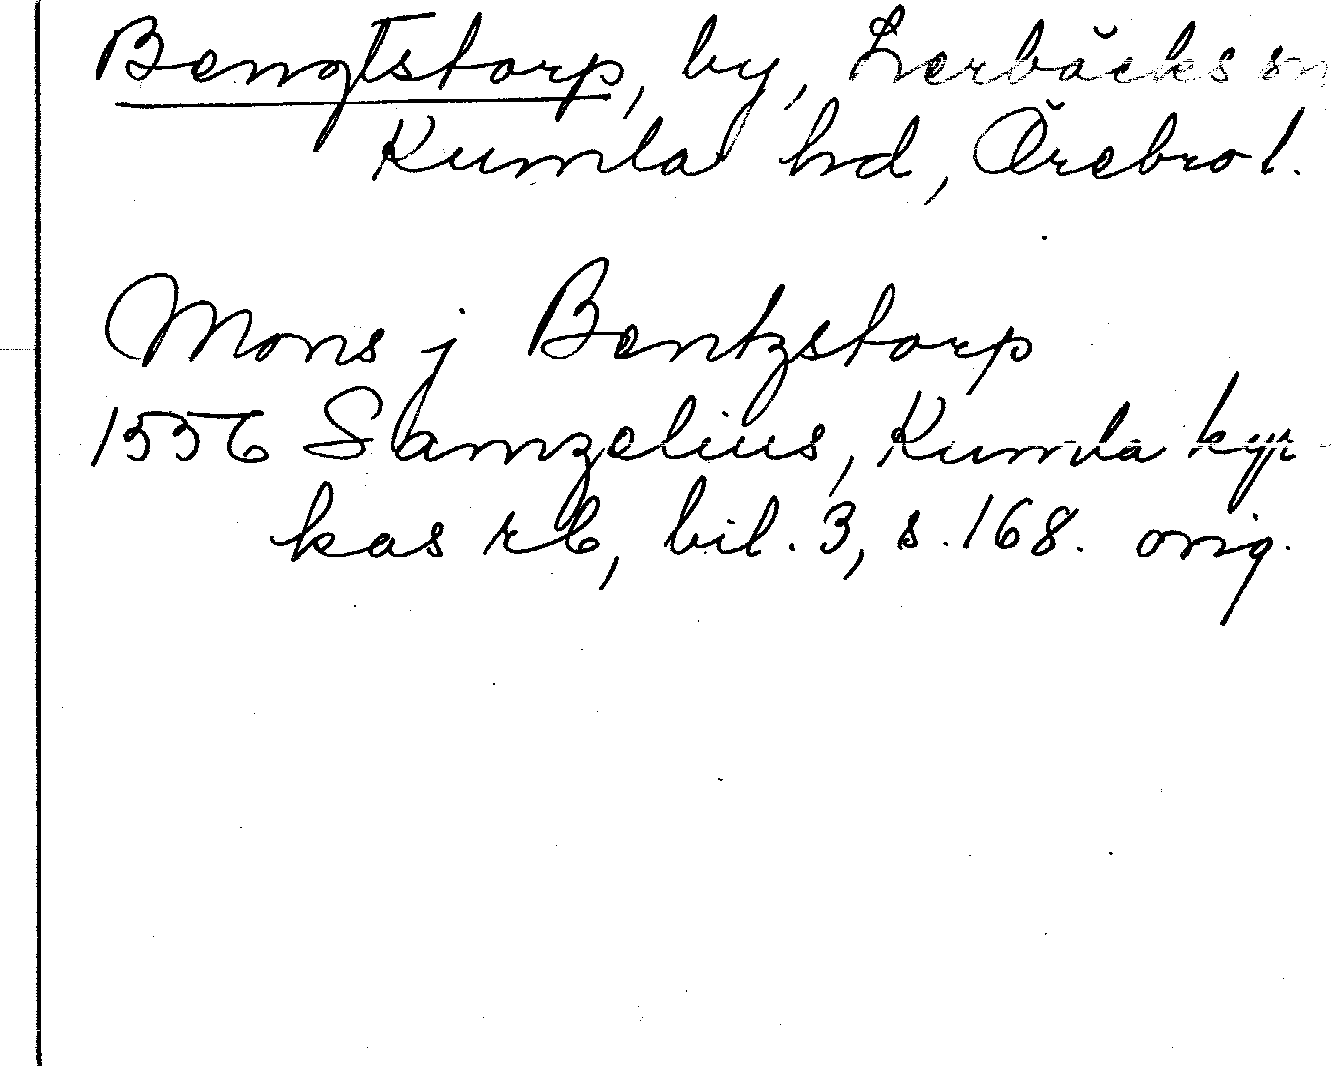 Bengtstorp, by, Lerbäcks sn
Kumla hd, Örebro l.
Mons j Bentzstorp
1556 Samzelius, Kumla kyr
kas rb, bil. 3, s. 168. orig.